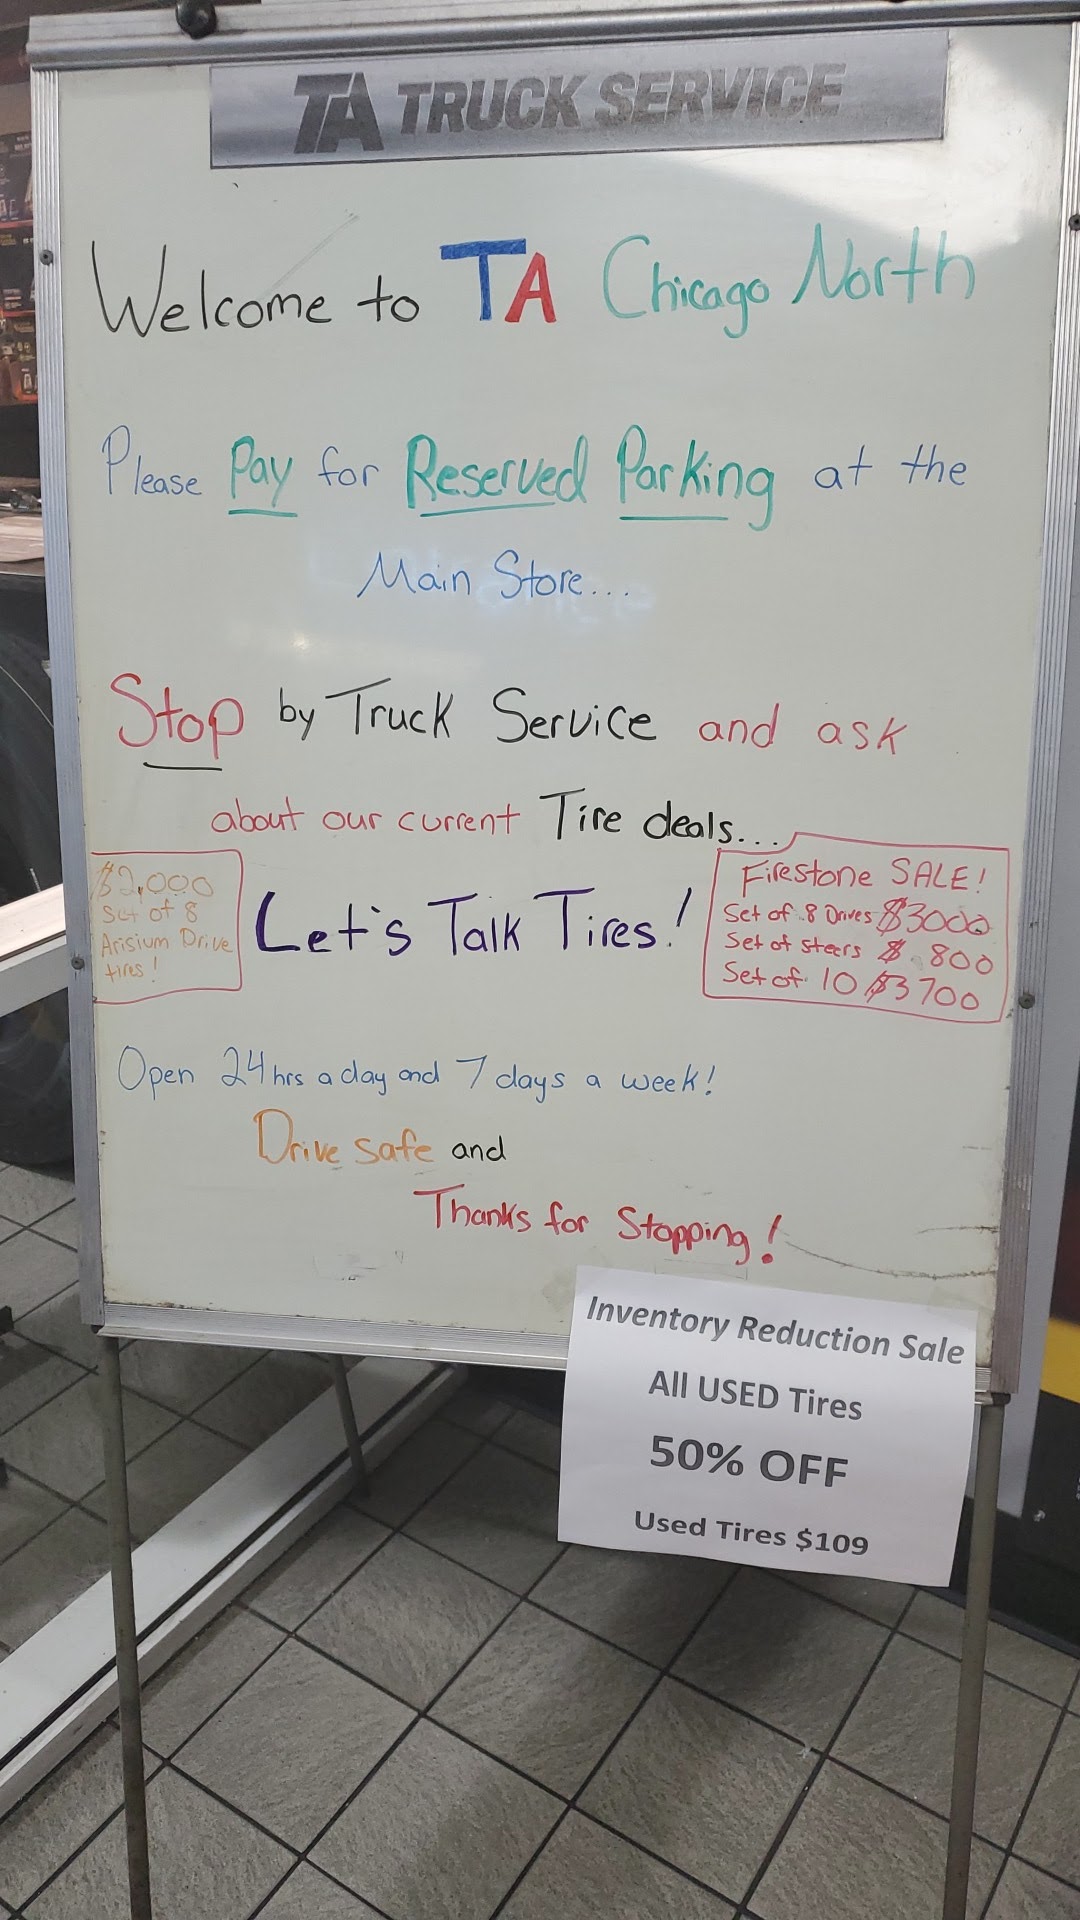 TA TRUCK SERVICE
Welcome to TA Chicago North
Please Pay for Reserved Parking at the
Main Store...
Stop by Truck Service and ask
about our current Tire deals...
$2,000
Set of 8
Arisium Drive
tires!
Let's Talk Tires!
Firestone SALE!
Set of 8 Drives $3000
Set of steers $ 800
Set of 10 $3700
Open 24hrs a day and 7 days a week!
Drive safe and
Thanks for Stopping!
Inventory Reduction Sale
All USED Tires
50% OFF
Used Tires $109